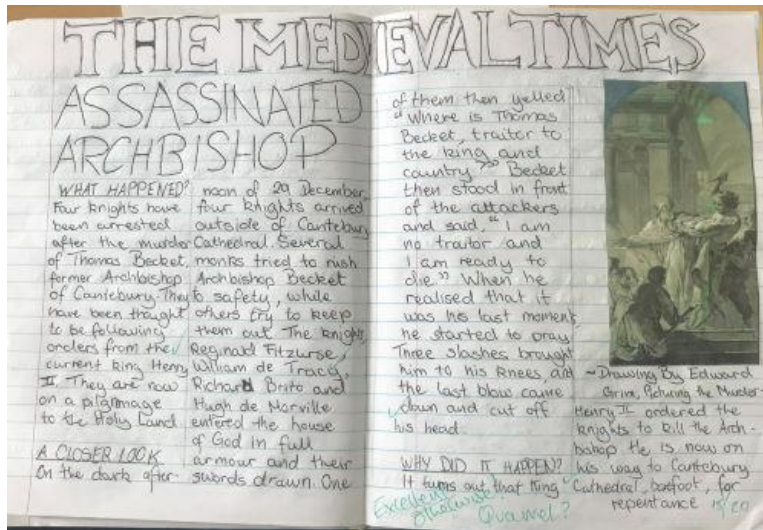 THE MEDIEVAL TIMES
ASSASSINATED
ARCHBISHOP
WHAT HAPPENED?
Four knights have
been arrested
after the murder
of Thomas Becket,
former Archbishop
of Cantebury They
have been thought
to be following
orders from the
current king Henry
II. They are now
on a pilgrimage
to the Holy Land
A CLOSER LOOK
On the dark after-
noon of 29 December,
four knights arrived
outside of Cantebury
Cathedral. Several
monks tried to rush
Archbishop Becket
to safety, while
others try to keep
them out The knights,
Reginald Fitzurse,
William de Tracy,
Richard Brito and
Hugh de Morville
entered the house
of God in full
armour and their
swords drawn One
of them then yelled
"Where is Thomas
Becket, traitor to
the king and
country?" Becket
then stood in front
of the attackers
and said, "I am
no traitor and
I am ready to
die." When he
realised that it
was his last moment,
he started to pray
Three slashes brought
him to his knees, and
the last blow came
down and cut off
his head
WHY DID IT HAPPEN?
It turns out that King
~Drawing By Edward
Grim, Picturing the Murder~
Henry II ordered the
knights to kill the Arch-
bishop He is now on
his way to Cantebury
Cathedral, barefoot, for
repentance
15/20
Excellent
otherwise
Quarrel?